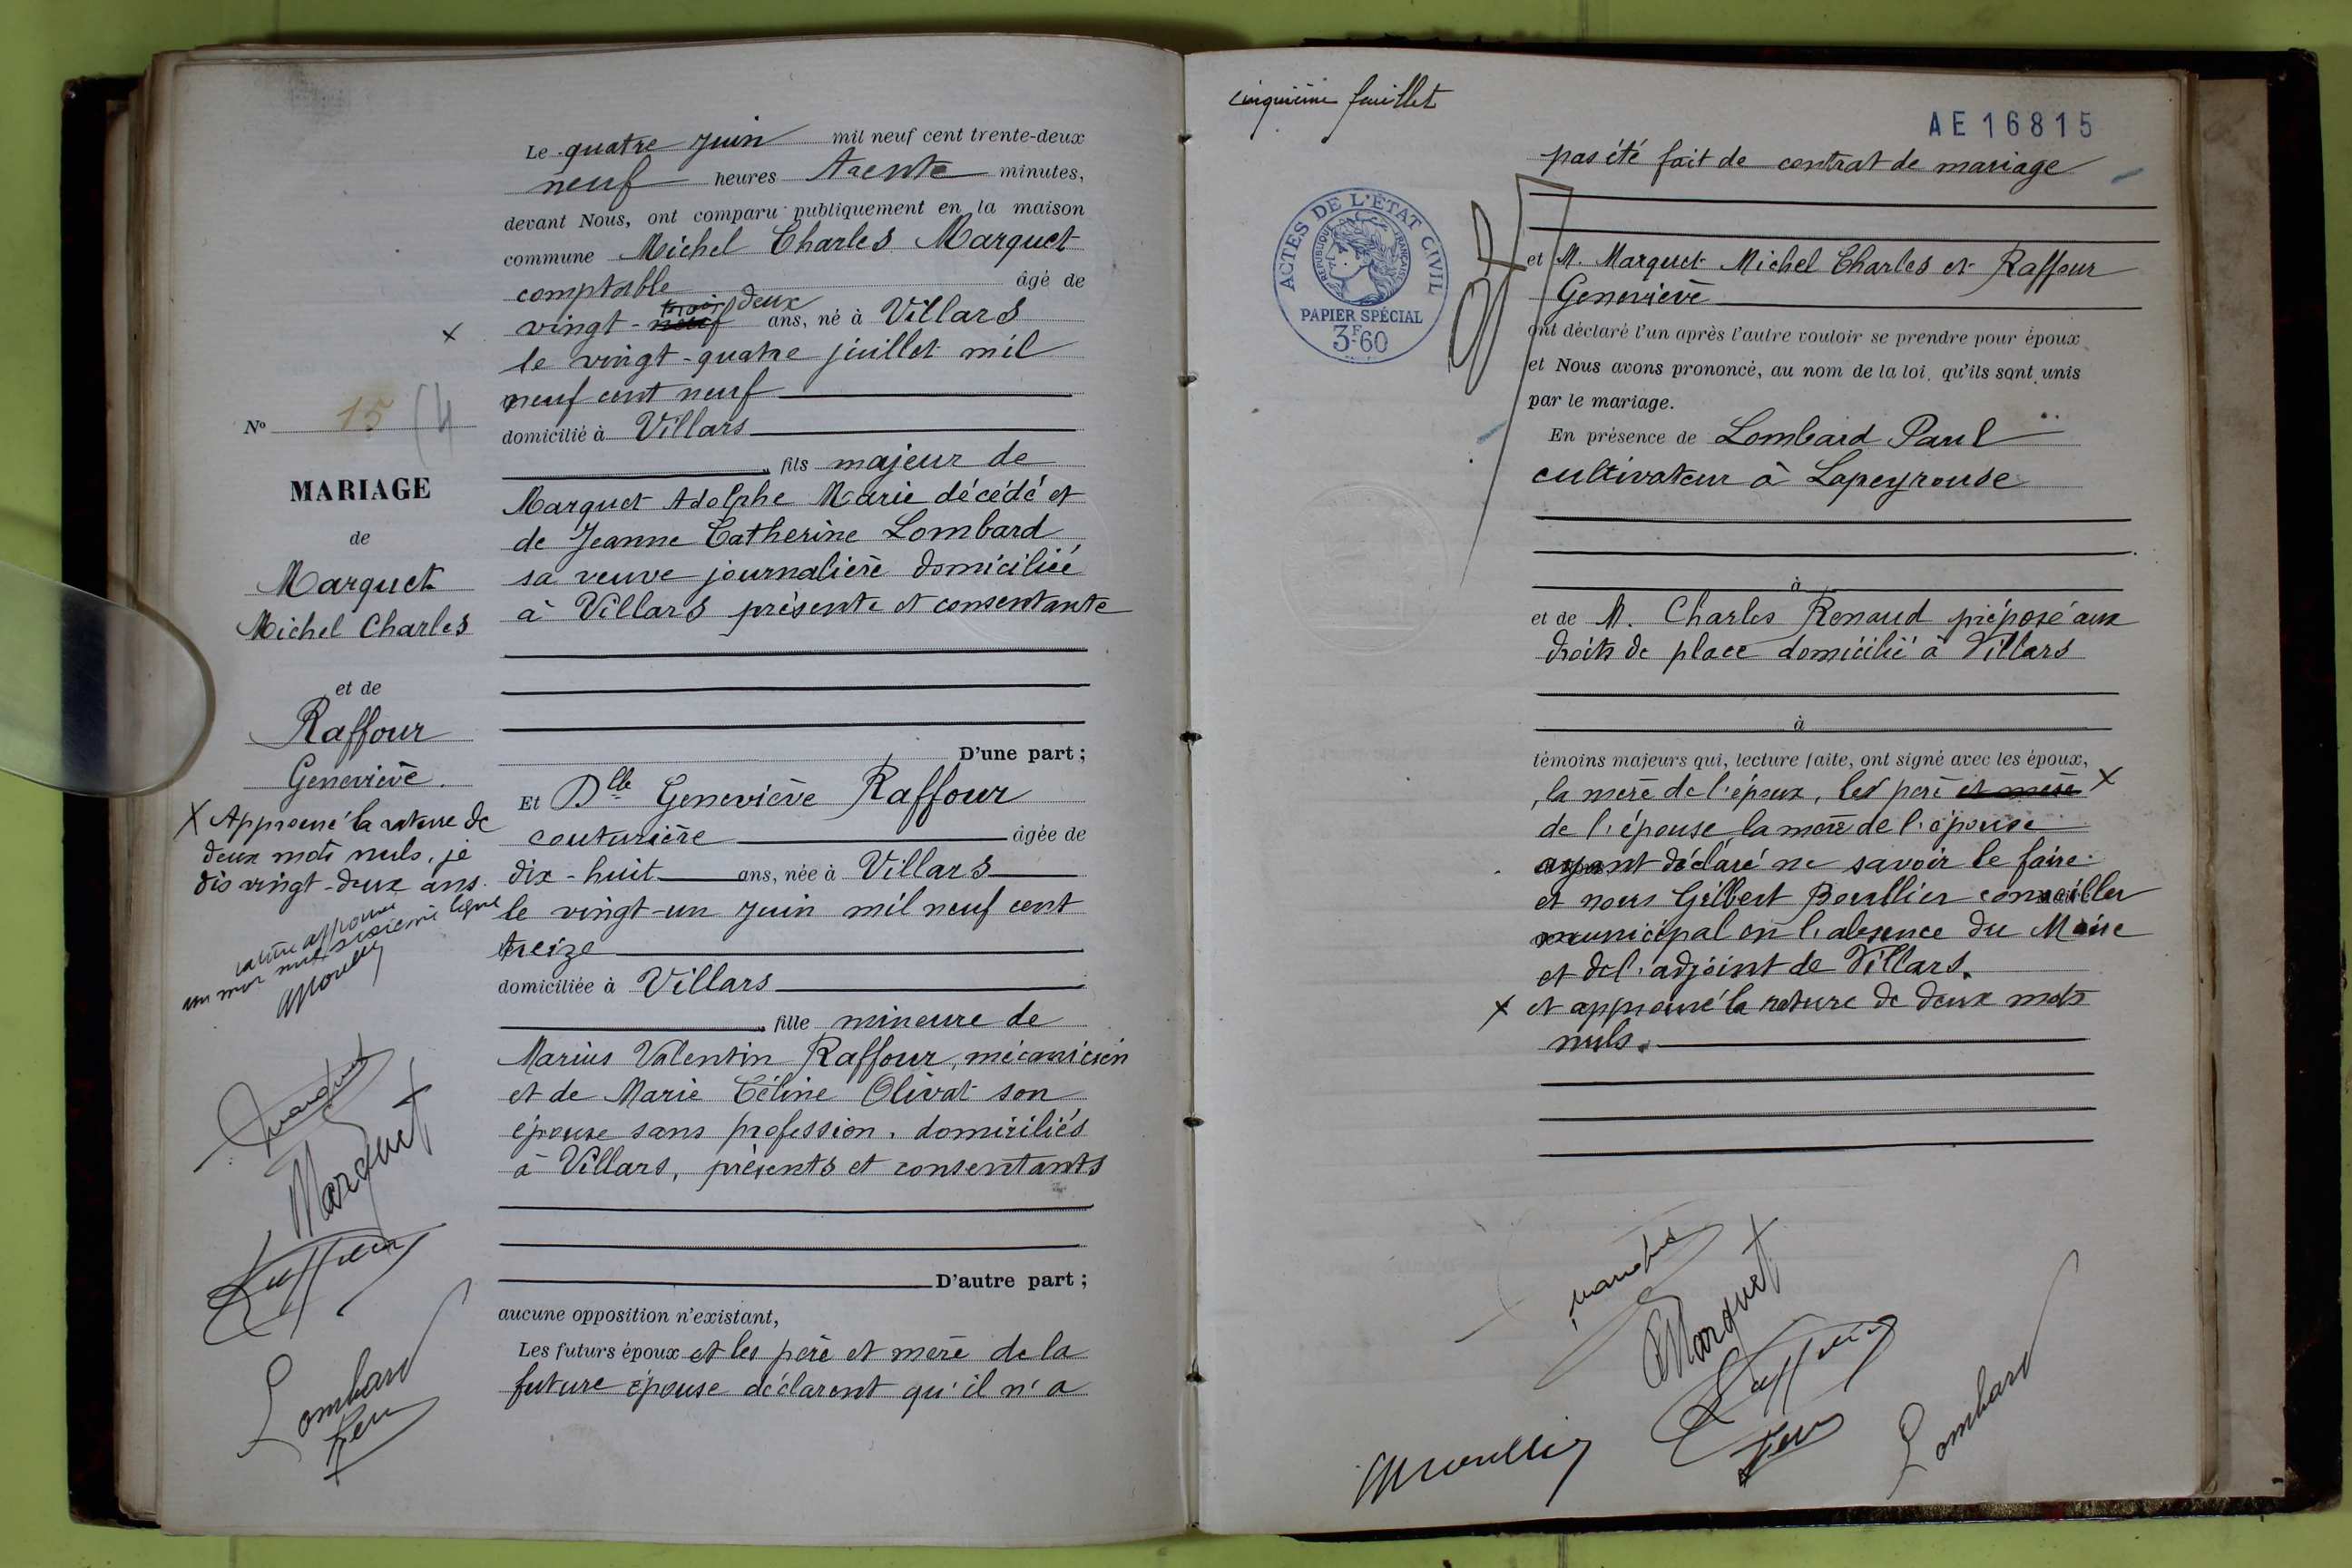 Le quatre Juin mil neuf cent trente-deux
neuf heures trente minutes,
devant Nous, ont comparu publiquement en la maison
commune Michel Charles Marquet
comptable âgé de
trois deux
x vingt-neuf ans, né à Villars
le vingt-quatre juillet mil
neuf cent neuf
domicilié à Villars
fils majeur de
Marquet Adolphe Marie décédé et
de Jeanne Catherine Lombard
sa veuve journalière domiciliée
à Villars présente et consentante
D'une part ;
Et Dlle Geneviève Raffour
couturière âgée de
dix-huit ans, née à Villars
le vingt-un Juin mil neuf cent
treize
domiciliée à Villars
fille mineure de
Marius Valentin Raffour, mécanicien
et de Marie Céline Olivat son
épouse sans profession, domiciliés
à Villars, présents et consentants
D'autre part ;
aucune opposition n'existant,
Les futurs époux et les père et mère de la
future épouse déclarent qu'il n'a
No 15
MARIAGE
de
Marquet
Michel Charles
et de
Raffour
Geneviève.
X Approuvé la rature de
deux mots nuls, je
dis vingt-deux ans.
rature approuvé
un mot nul sixième ligne
Marquet
Raffour
Lombard
cinquième feuillet
AE16815
ACTES DE L'ÉTAT CIVIL
RÉPUBLIQUE FRANÇAISE
PAPIER SPÉCIAL
3F60
pas été fait de contrat de mariage
et M. Marquet Michel Charles et Raffour
Geneviève
ont déclaré l'un après l'autre vouloir se prendre pour époux
et Nous avons prononcé, au nom de la loi, qu'ils sont unis
par le mariage.
En présence de Lombard Paul
cultivateur à Lapeyrouse
à
et de M. Charles Renaud préposé aux
droits de place domicilié à Villars
à
témoins majeurs qui, lecture faite, ont signé avec les époux,
, la mère de l'époux, les père et mère X
de l'épouse, la mère de l'épouse
ayant déclaré ne savoir le faire.
et nous Gilbert conseiller
municipal en l'absence du Maire
et de l'adjoint de Villars.
X et approuvé la rature de deux mots
nuls.
Marquet
Raffour
Lombard